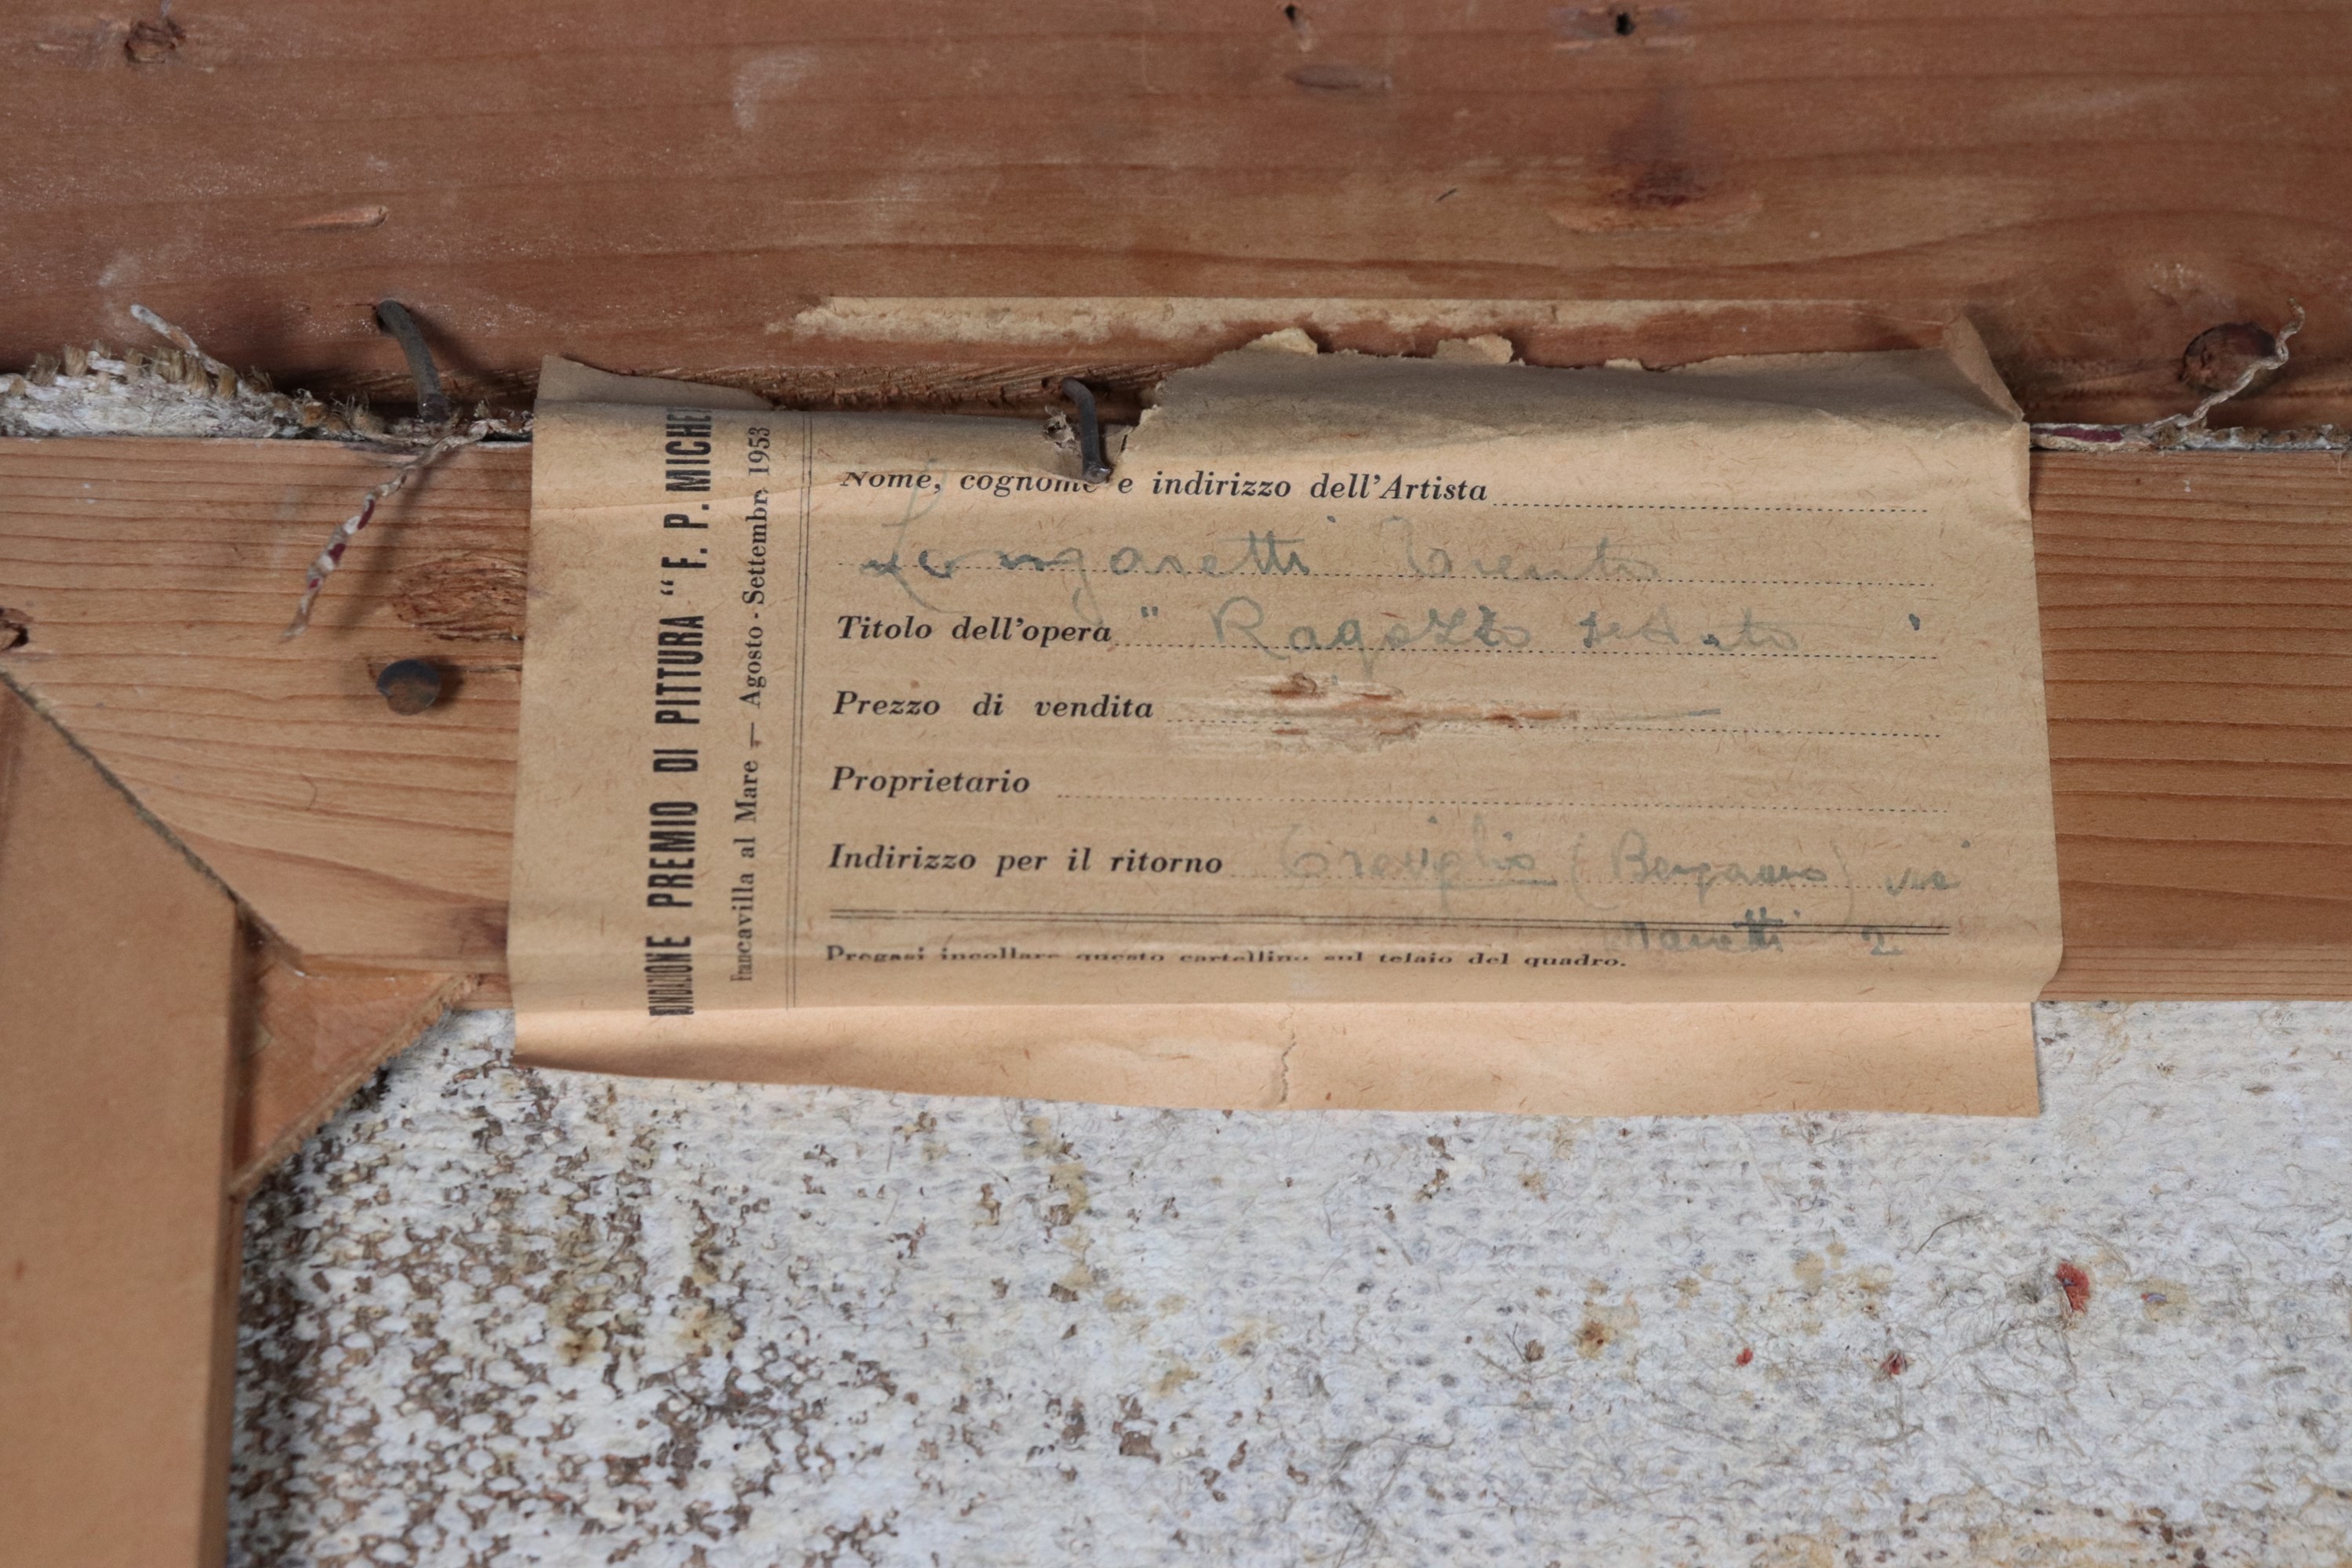 FONDAZIONE PREMIO DI PITTURA “F. P. MICHE
Francavilla al Mare — Agosto - Settembre 1953
Nome, cognome e indirizzo dell'Artista
Longaretti Trento
Titolo dell'opera " Ragazzo seduto "
Prezzo di vendita
Proprietario
Indirizzo per il ritorno Treviglio (Bergamo) via
2
Pregasi incollare questo cartellino sul telaio del quadro.